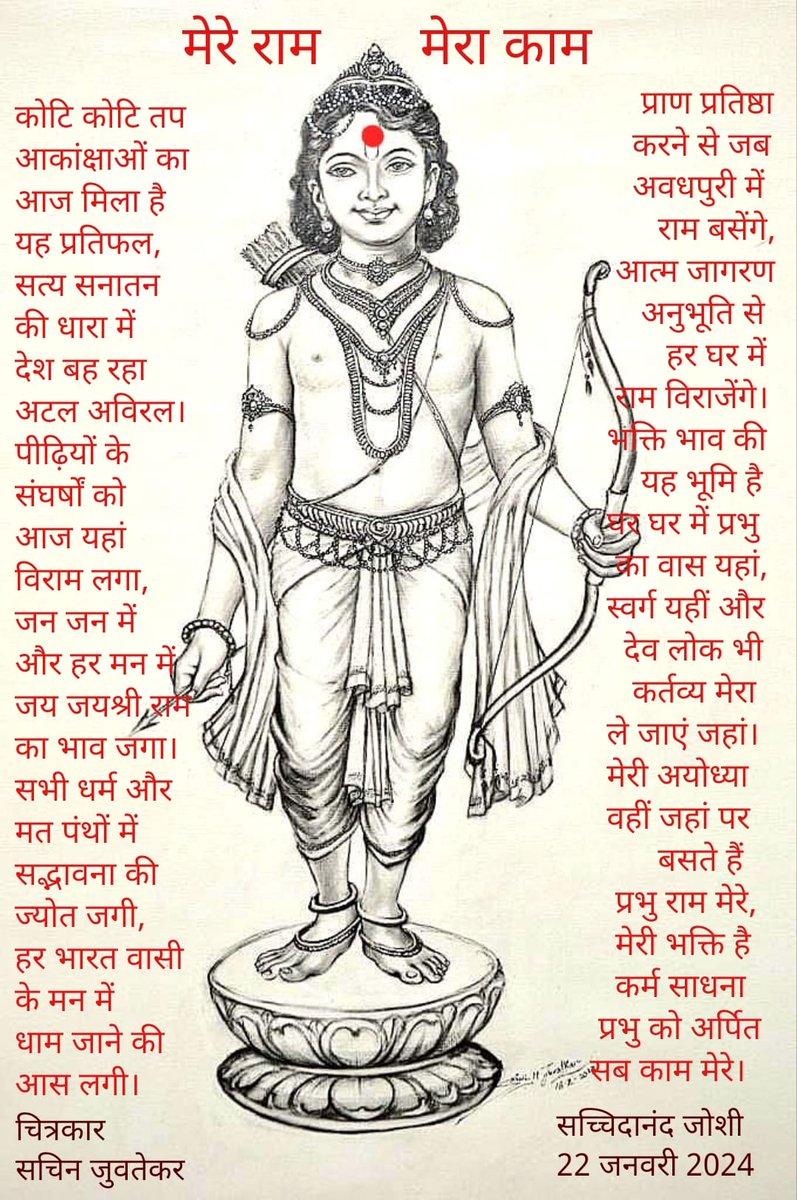 मेरे राम मेरा काम
कोटि कोटि तप
आकांक्षाओं का
आज मिला है
यह प्रतिफल,
सत्य सनातन
की धारा में
देश बह रहा
अटल अविरल।
पीढ़ियों के
संघर्षों को
आज यहां
विराम लगा,
जन जन में
और हर मन में
जय जयश्री राम
का भाव जगा।
सभी धर्म और
मत पंथों में
सद्भावना की
ज्योत जगी,
हर भारत वासी
के मन में
धाम जाने की
आस लगी।
चित्रकार
सचिन जुवतेकर
प्राण प्रतिष्ठा
करने से जब
अवधपुरी में
राम बसेंगे,
आत्म जागरण
अनुभूति से
हर घर में
राम विराजेंगे।
भक्ति भाव की
यह भूमि है
घर घर में प्रभु
का वास यहां,
स्वर्ग यहीं और
देव लोक भी
कर्तव्य मेरा
ले जाएं जहां।
मेरी अयोध्या
वहीं जहां पर
बसते हैं
प्रभु राम मेरे,
मेरी भक्ति है
कर्म साधना
प्रभु को अर्पित
सब काम मेरे।
सच्चिदानंद जोशी
22 जनवरी 2024